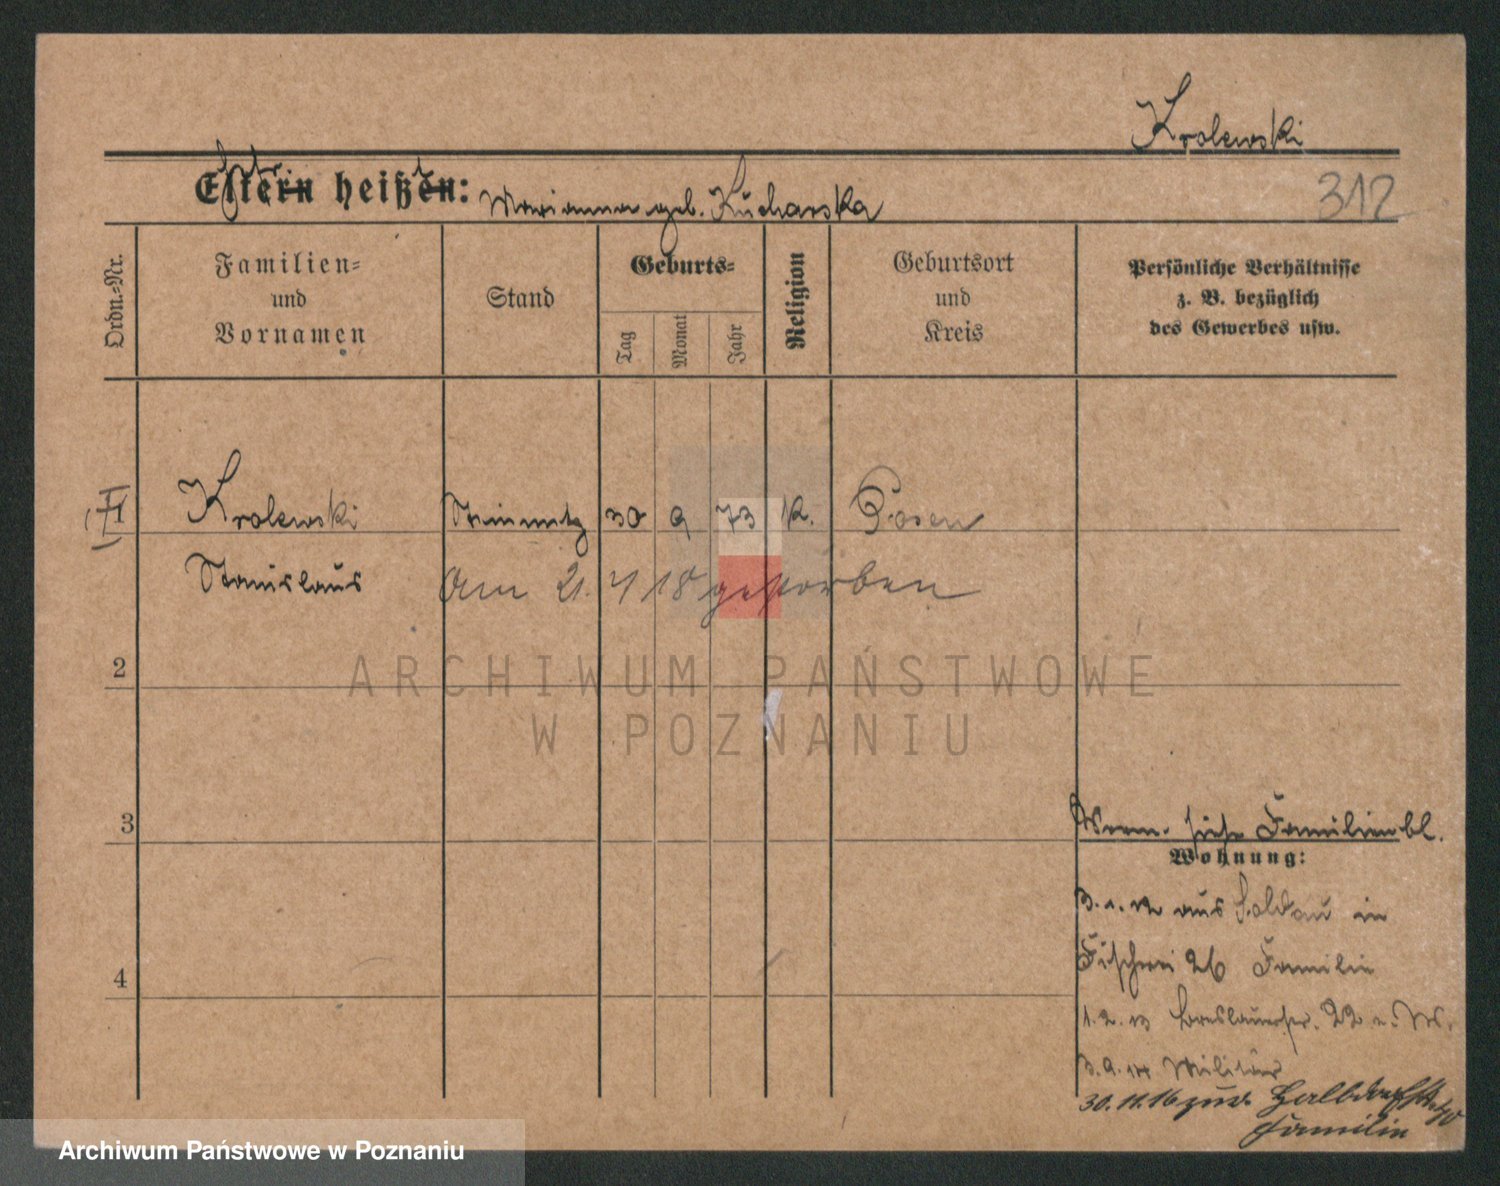 Krolewski
Eltern heißen: Marianna geb. Kucharska
312
Ordn.-Nr.
Familien- und Vornamen
Stand
Geburts-
Tag
Monat
Jahr
Religion
Geburtsort und Kreis
Persönliche Verhältnisse
z. B. bezüglich
des Gewerbes usw.
1 Krolewski Steinmetz 30 9 73 k. Posen
Stanislaus Am 21. 4 18 gestorben
2
3
4
Verm. siehe Familienbl.
Wohnung:
aus Soldau in
Fischerei 26 Familie
1.2.13 Breslauerstr. 22
3.9.14 Militär
30.11.16 Halbdorfstr.
Familie
ARCHIWUM PAŃSTWOWE
W POZNANIU
Archiwum Państwowe w Poznaniu